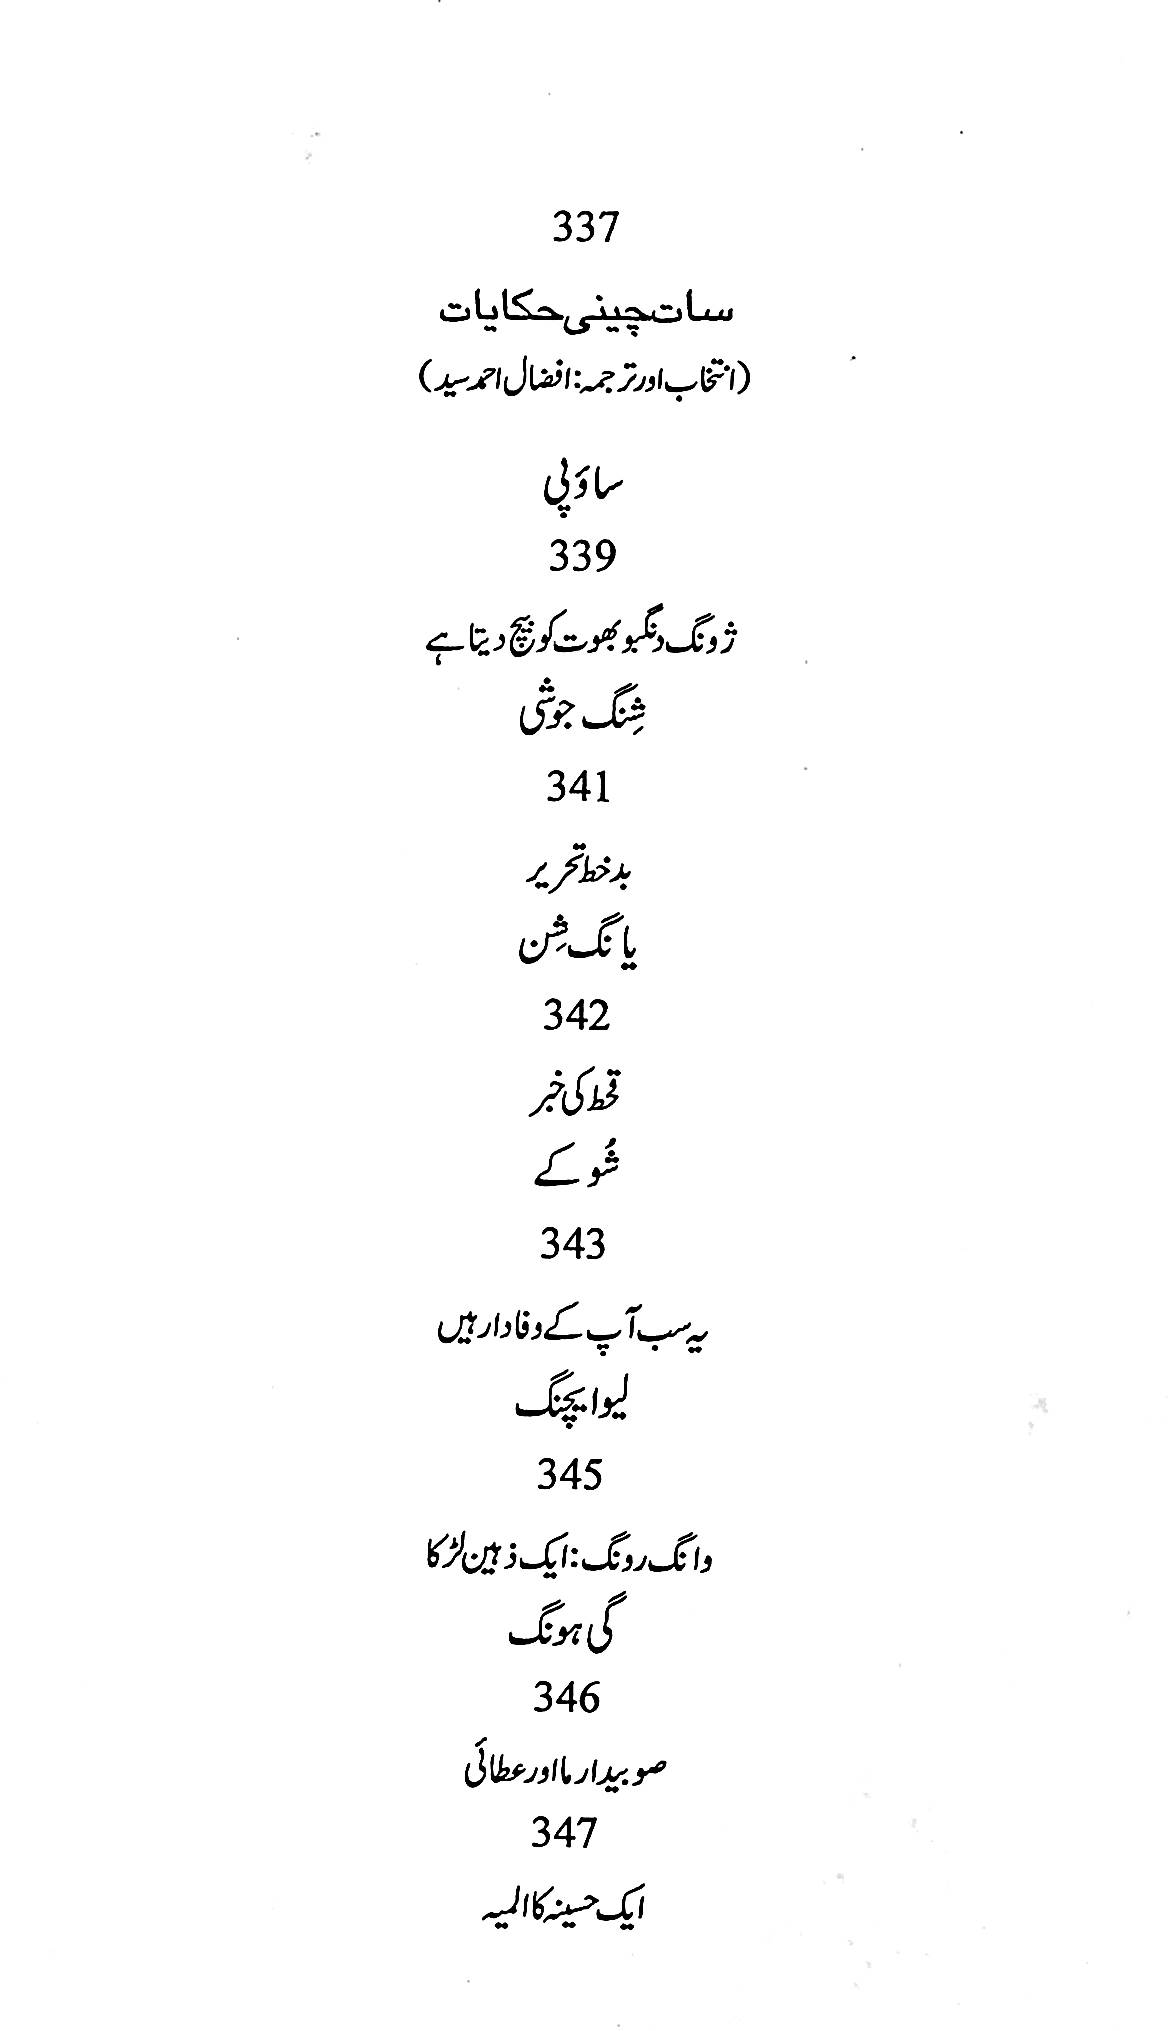 337
سات چینی حکایات
(انتخاب اور ترجمہ: افضال احمد سید)
ساؤپی
339
ژونگ دنگبو بھوت کو بیچ دیتا ہے
شِنگ جوشی
341
بدخط تحریر
یانگ شِن
342
قحط کی خبر
شُو کے
343
یہ سب آپ کے وفادار ہیں
لیوا یچنگ
345
وانگ رونگ: ایک ذہین لڑکا
گی ہونگ
346
صوبیدار ما اور عطائی
347
ایک حسینہ کا المیہ